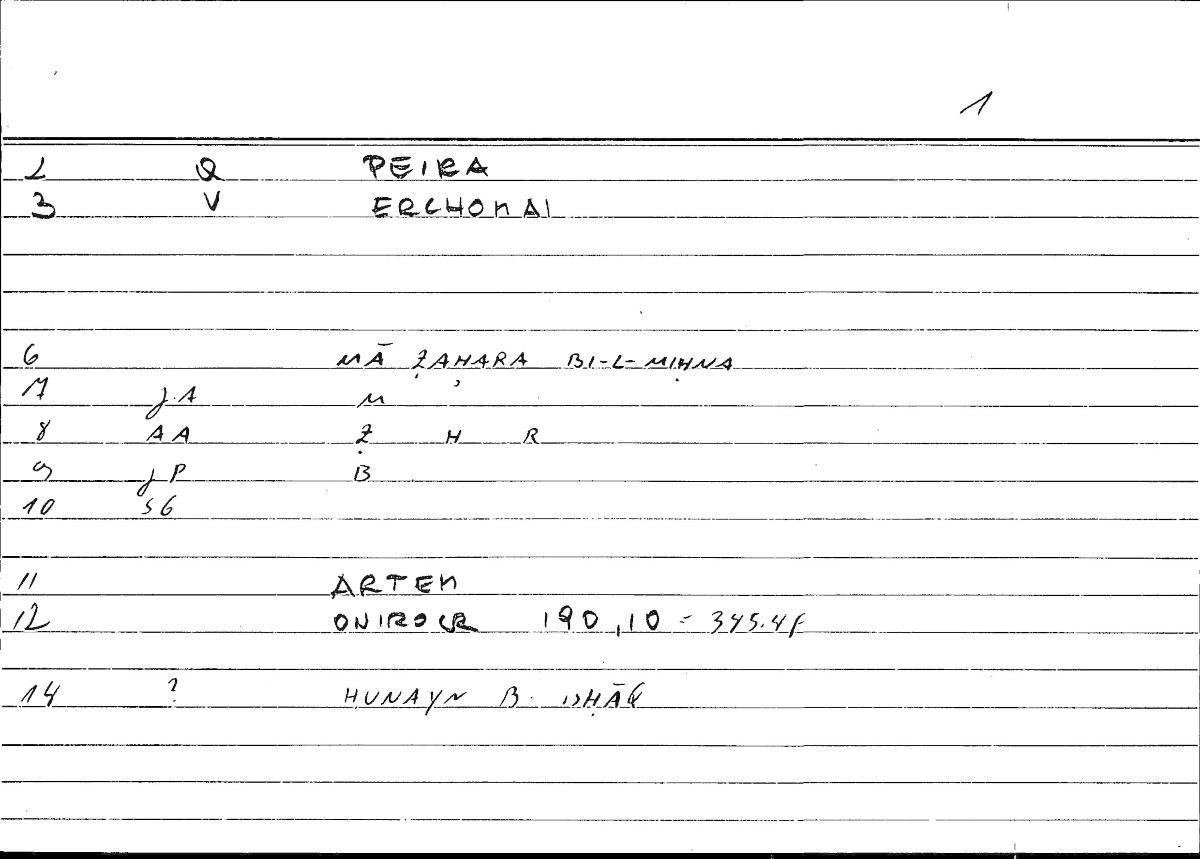 1
2 Q PEIRA
3 V ERCHOMAI
6 MĀ ẒAHARA BI-L-MIḤNA
7 J.A M
8 AA Ẓ H R
9 JP B
10 SG
11 ARTEM
12 ONIROCR 190,10 = 345.4f
14 ? HUNAYN B. ISḤĀQ